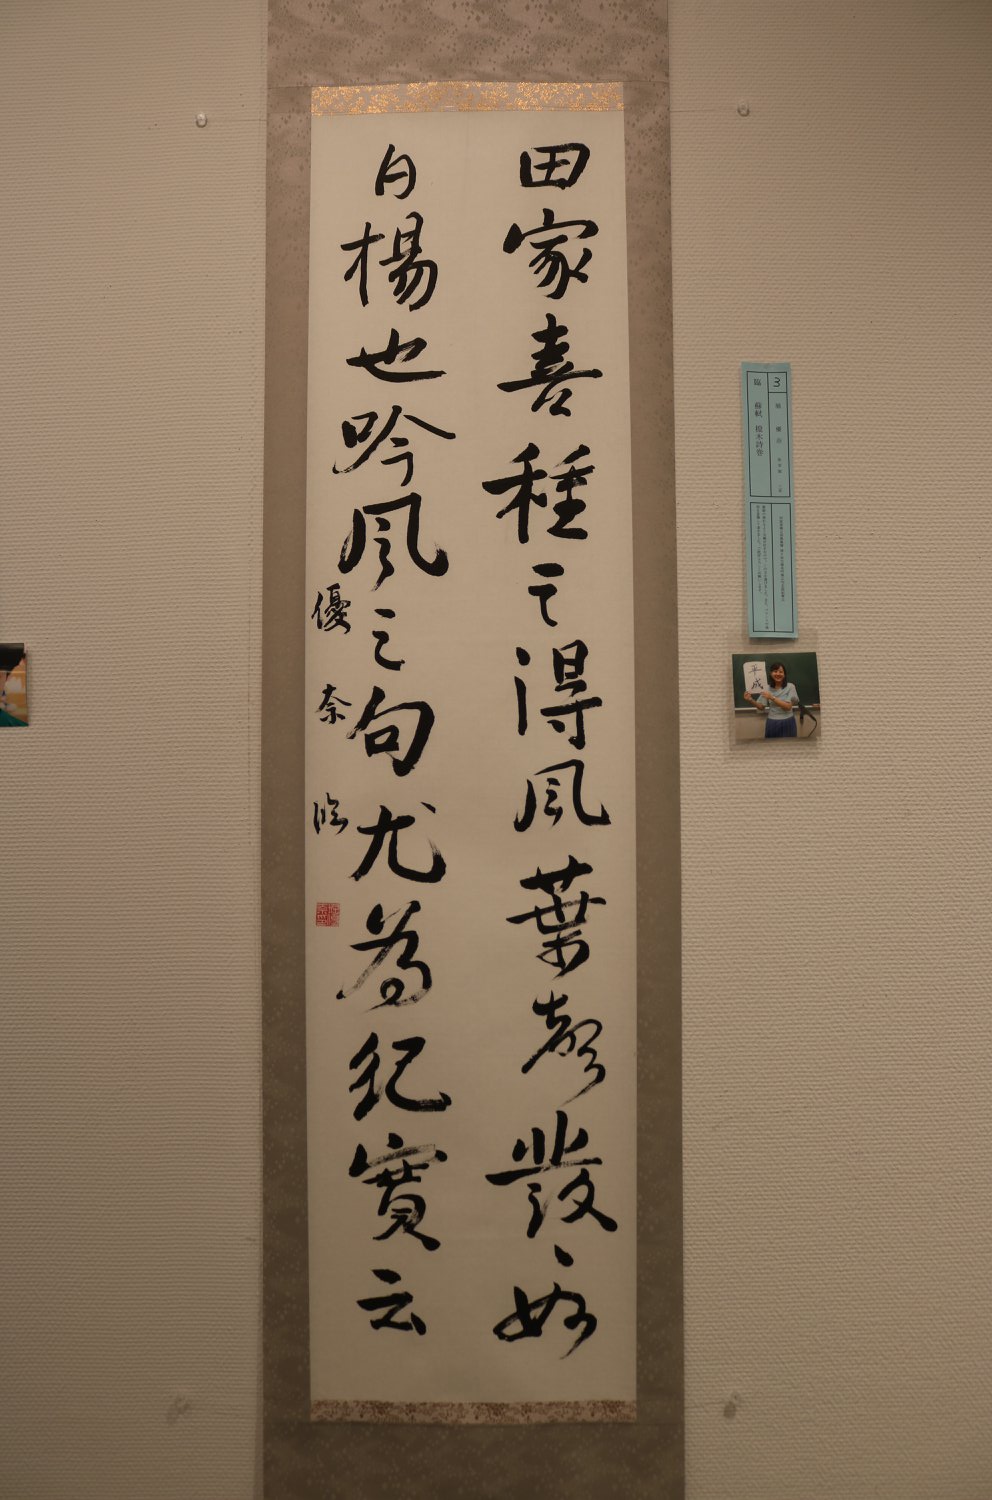 田家喜種之得風葉聲發〻如
白楊也吟風之句尤為紀實云
優奈臨
3
臨 蘇軾 榿木詩巻
平成